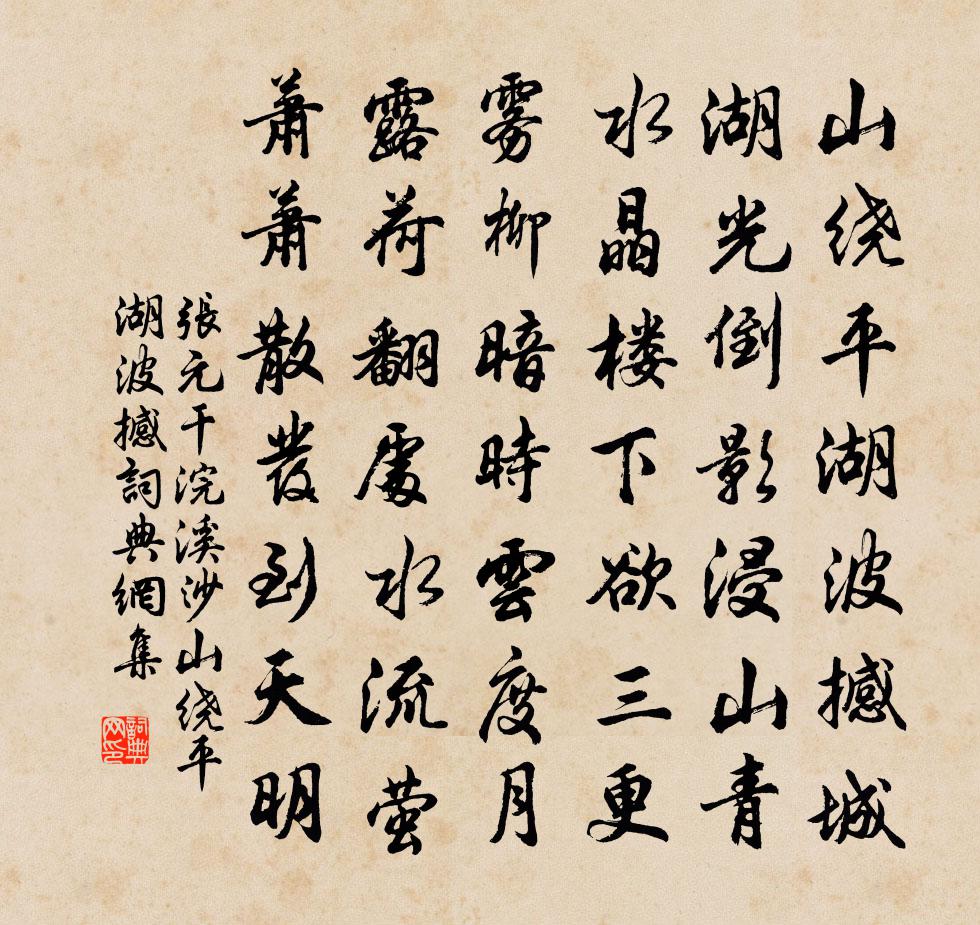 山绕平湖波撼城
湖光倒影浸山青
水晶楼下欲三更
雾柳暗時雲度月
露荷翻處水流萤
萧萧散发到天明
張元干浣溪沙山绕平
湖波撼詞典網集
詞典网印